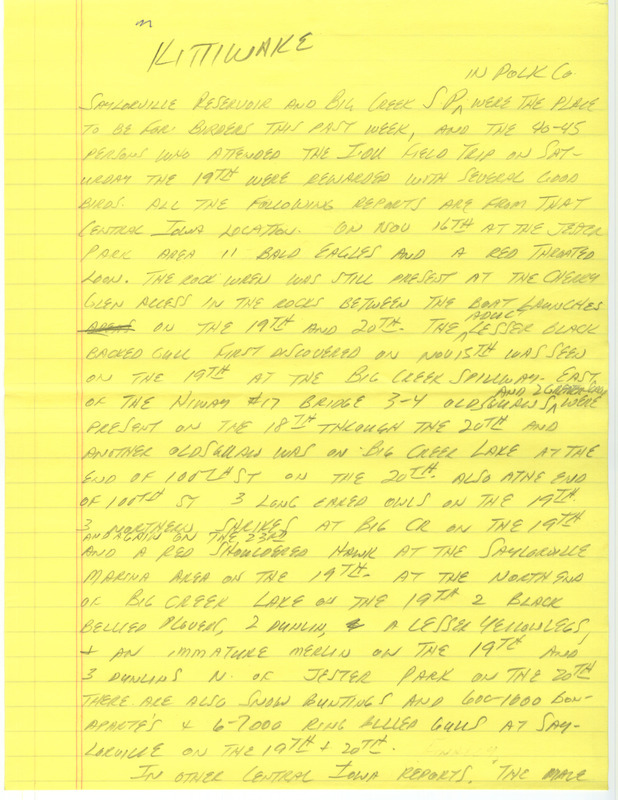 KITTIWAKE
IN POLK CO.
SAYLORVILLE RESERVOIR AND BIG CREEK S P WERE THE PLACE
TO BE FOR BIRDERS THIS PAST WEEK, AND THE 40-45
PERSONS WHO ATTENDED THE I.O.U FIELD TRIP ON SAT-
URDAY THE 19TH WERE REWARDED WITH SEVERAL GOOD
BIRDS. ALL THE FOLLOWING REPORTS ARE FROM THAT
CENTRAL IOWA LOCATION. ON NOV 16TH AT THE JESTER
PARK AREA 11 BALD EAGLES AND A RED THROATED
LOON. THE ROCK WREN WAS STILL PRESENT AT THE CHERRY
GLEN ACCESS IN THE ROCKS BETWEEN THE BOAT LAUNCHES
AREAS ON THE 19TH AND 20TH. THE ADULT LESSER BLACK
BACKED GULL FIRST DISCOVERED ON NOV 15TH WAS SEEN
ON THE 19TH AT THE BIG CREEK SPILLWAY. EAST
OF THE HIWAY #17 BRIDGE 3-4 OLDSQUAWS AND 2 WERE
PRESENT ON THE 18TH THROUGH THE 20TH AND
ANOTHER OLDSQUAW WAS ON BIG CREEK LAKE AT THE
END OF 100TH ST ON THE 20TH. ALSO ATHE END
OF 100TH ST 3 LONG EARED OWLS ON THE 19TH.
3 NORTHERN SHRIKES AT BIG CR ON THE 19TH
AND AGAIN ON THE 23RD
AND A RED SHOULDERED HAWK AT THE SAYLORVILLE
MARINA AREA ON THE 19TH. AT THE NORTH END
OF BIG CREEK LAKE ON THE 19TH 2 BLACK
BELLIED PLOVERS, 2 DUNLIN, A LESSER YELLOWLEGS,
+ AN IMMATURE MERLIN ON THE 19TH AND
3 DUNLINS N. OF JESTER PARK ON THE 20TH
THERE ARE ALSO SNOW BUNTINGS AND 600-1000 BON-
APARTE'S + 6-7000 RING BILLED GULLS AT SAY-
LORVILLE ON THE 19TH + 20TH.
IN OTHER CENTRAL IOWA REPORTS. THE MALE